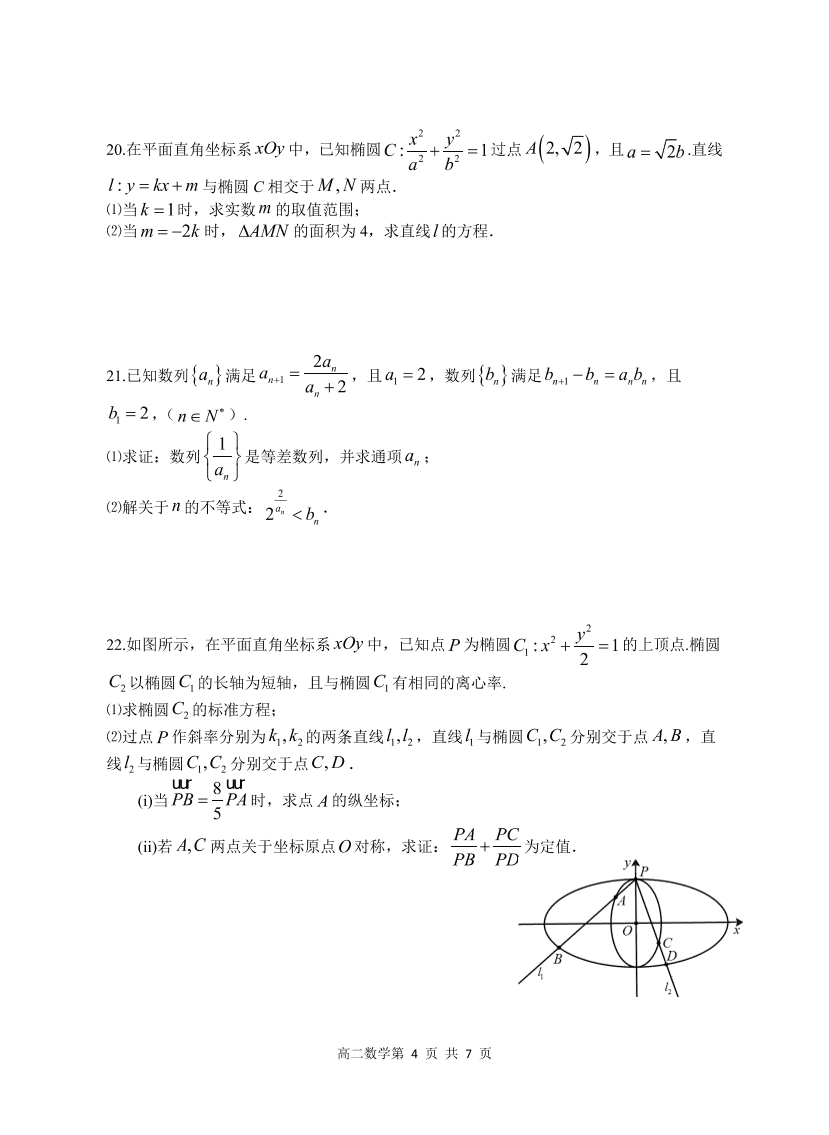 20.在平面直角坐标系 xOy 中，已知椭圆 C : x²/a² + y²/b² = 1 过点 A(2, √2)，且 a = √2b .直线
l : y = kx + m 与椭圆 C 相交于 M , N 两点．
⑴当 k = 1 时，求实数 m 的取值范围；
⑵当 m = −2k 时，ΔAMN 的面积为 4，求直线 l 的方程．
21.已知数列 {aₙ} 满足 aₙ₊₁ = 2aₙ/(aₙ + 2)，且 a₁ = 2，数列 {bₙ} 满足 bₙ₊₁ − bₙ = aₙbₙ，且
b₁ = 2，（ n ∈ N* ）.
⑴求证：数列 {1/aₙ} 是等差数列，并求通项 aₙ；
⑵解关于 n 的不等式：2^(2/aₙ) < bₙ．
22.如图所示，在平面直角坐标系 xOy 中，已知点 P 为椭圆 C₁ : x² + y²/2 = 1 的上顶点.椭圆
C₂ 以椭圆 C₁ 的长轴为短轴，且与椭圆 C₁ 有相同的离心率.
⑴求椭圆 C₂ 的标准方程；
⑵过点 P 作斜率分别为 k₁, k₂ 的两条直线 l₁, l₂，直线 l₁ 与椭圆 C₁, C₂ 分别交于点 A, B，直
线 l₂ 与椭圆 C₁, C₂ 分别交于点 C, D．
uur uur
(i)当 PB = 8/5 PA 时，求点 A 的纵坐标；
(ii)若 A, C 两点关于坐标原点 O 对称，求证：PA/PB + PC/PD 为定值．
y
P
A
O
x
C
B
D
l₁
l₂
高二数学第 4 页 共 7 页